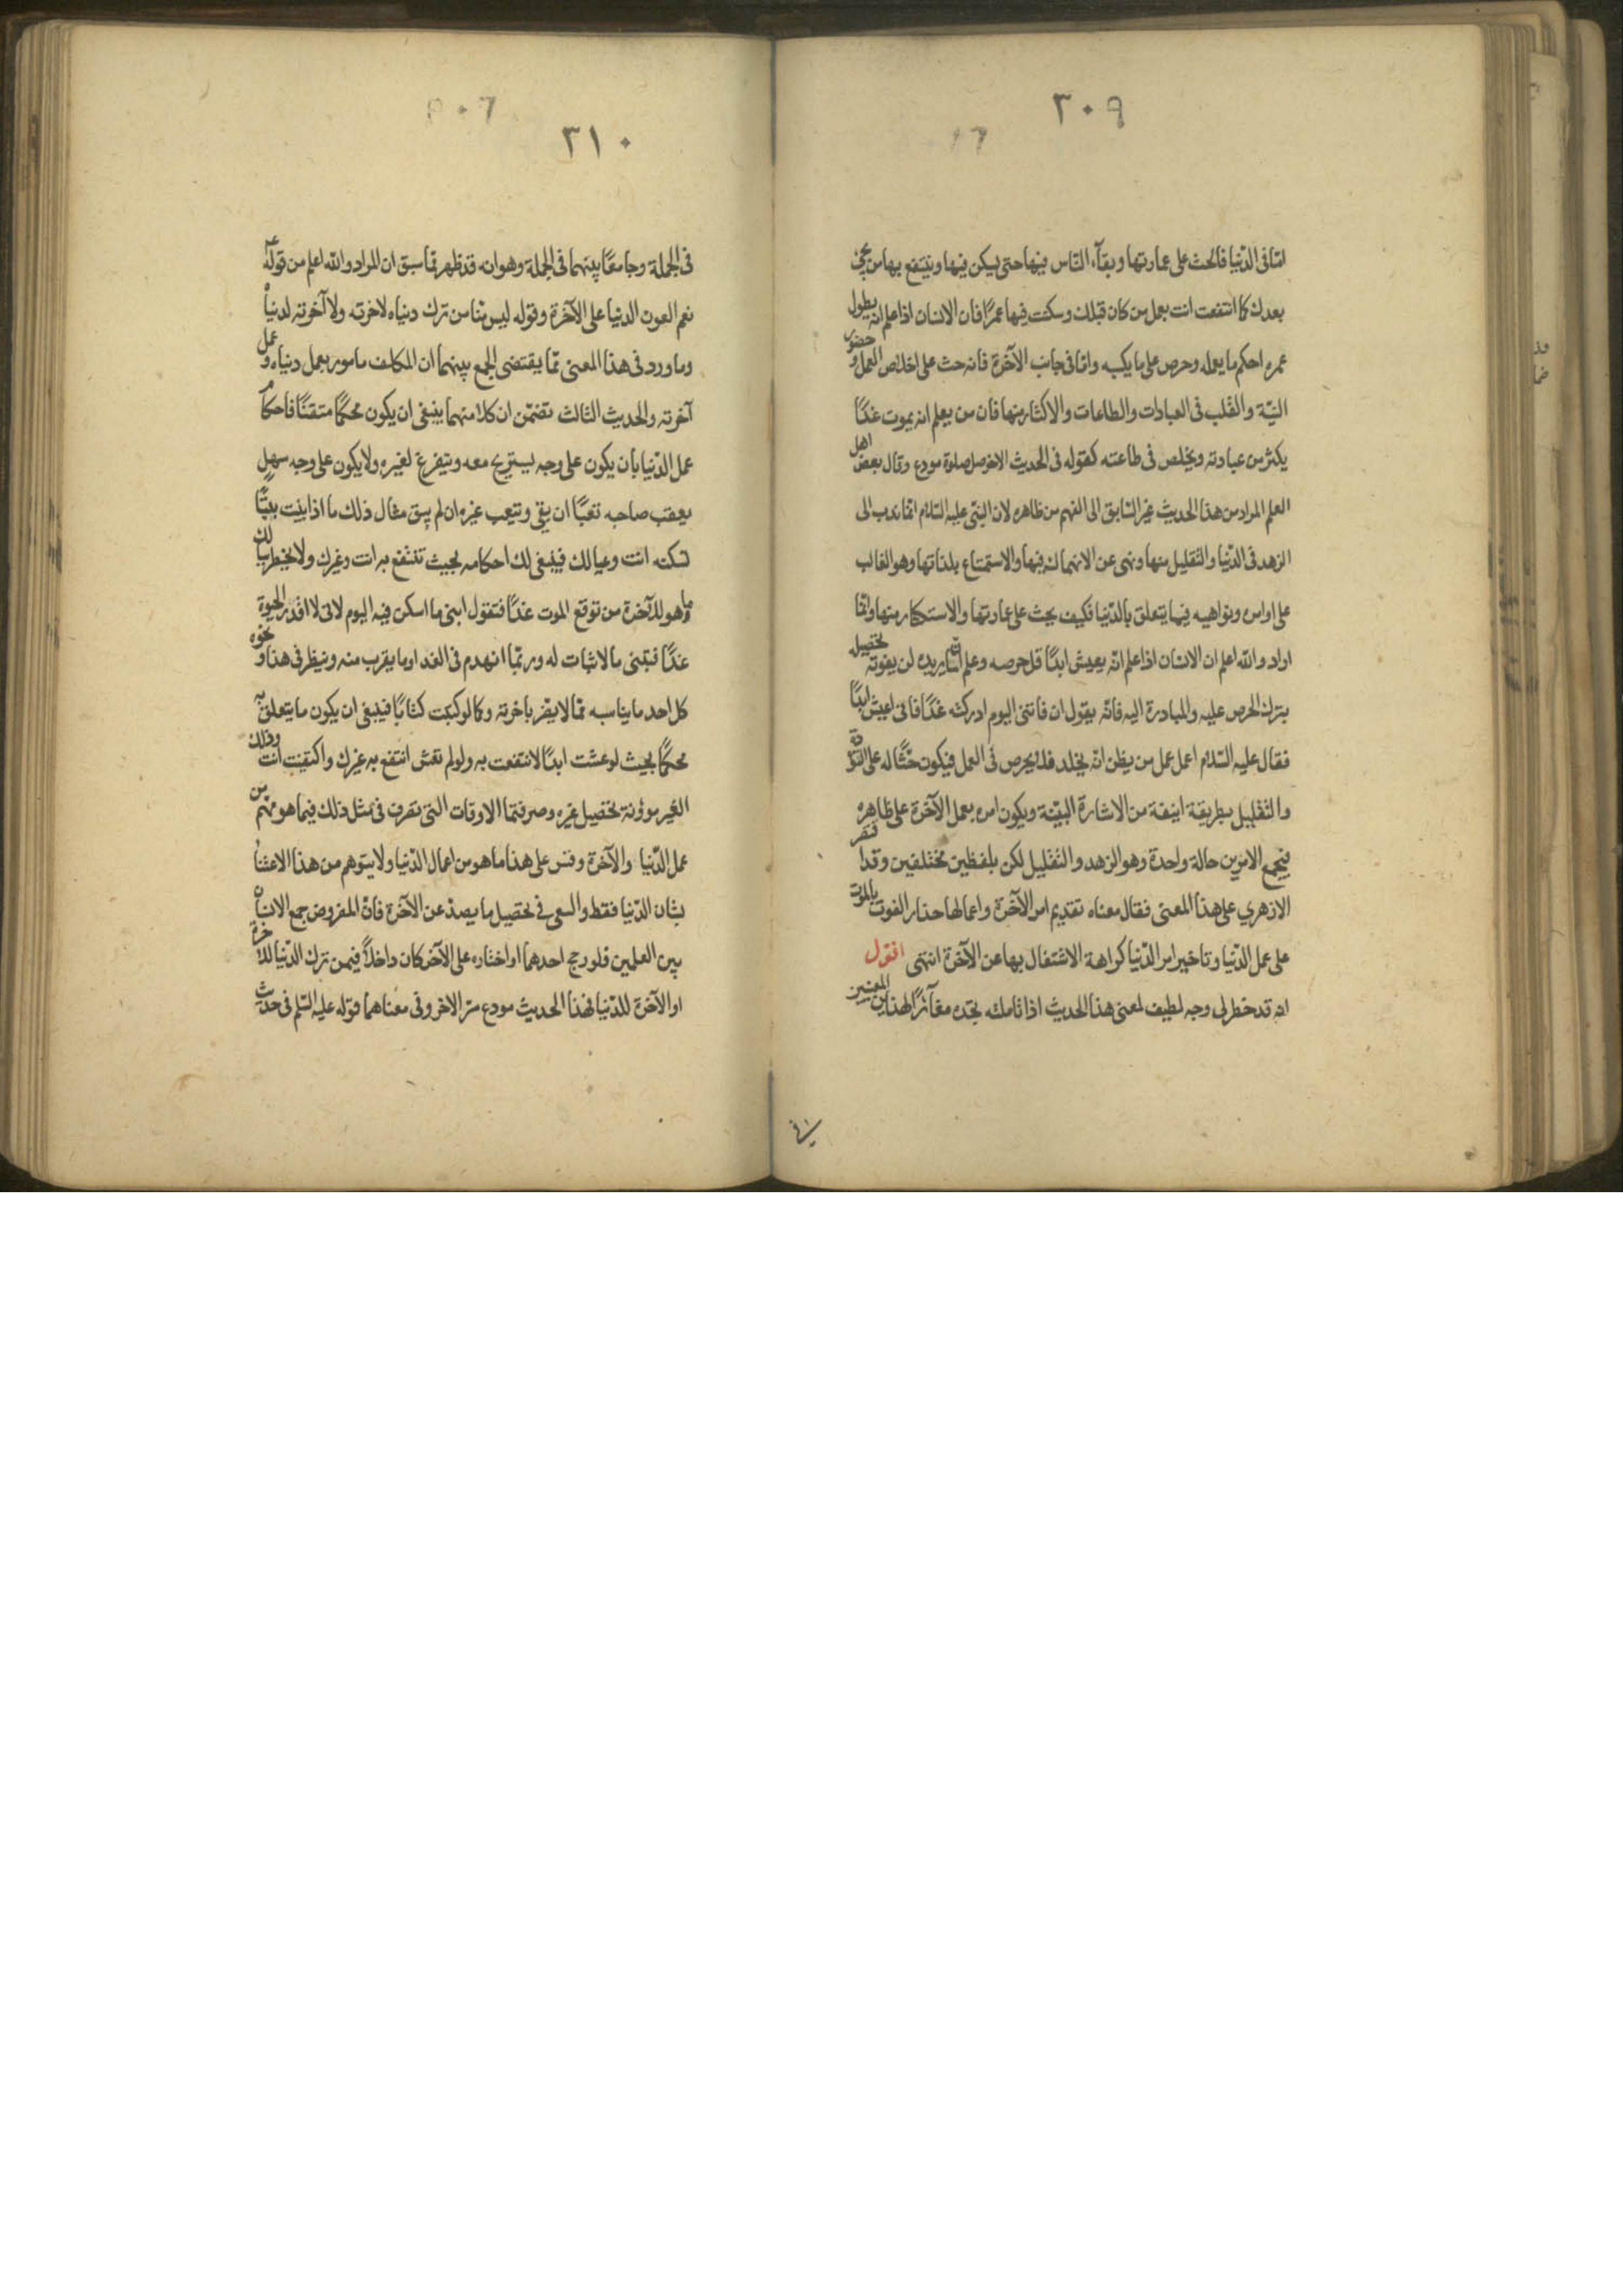 ٣٠٩
اما فى الدّنيا فالحث على عمارتها وبقآء الناس فيها حتى يسكن فيها وينتفع بها من يجئ
بعدك كما انتفعت انت بعمل من كان قبلك وسكنت فيها عمرًا فان الانسان اذا علم انه يطول
عمره احكم ما يعمله وحرص على ما يكسبه واما فى جانب الآخرة فانه حث على اخلاص العمل وحضور
النيّة والقلب فى العبادات والطاعات والاكثار منها فان من يعلم انه يموت غدًا
يكثر من عبادته ويخلص فى طاعته كقوله فى الحديث الاخر صل صلوة مودع وقال بعض اهل
العلم المراد من هذا الحديث غير السّابق الى الفهم من ظاهره لان النبى عليه السّلام انما ندب الى
الزهد فى الدّنيا والتقليل منها ونهى عن الانهماك فيها والاستمتاع بلذاتها وهو الغالب
على اوامره ونواهيه فيما يتعلق بالدّنيا فكيف يحث على عمارتها والاستكثار منها وانّما
اراد والله اعلم ان الانسان اذا علم انّه يعيش ابدًا قل حرصه وعلم ان ما يريده لن يفوته تحصيله
بترك الحرص عليه والمبادرة اليه فانّه يقول ان فاتنى اليوم ادركته غدًا فانى اعيش ابدًا
فقال عليه السّلام اعمل عمل من يظن انّه يخلد فلا يحرص فى العمل فيكون حثًّا له على الترك
والتقليل بطريقة انيقة من الاشارة البيّنة ويكون امره بعمل الآخرة على ظاهره
فيجمع الامرين حالة واحدة وهو الزهد والتقليل لكن بلفظين مختلفين وقد اقتصر
الازهري على هذا المعنى فقال معناه تقديم امر الآخرة واعمالها حذار الفوت بالموت
على عمل الدّنيا وتاخير امر الدّنيا كراهة الاشتغال بها عن الآخرة انتهى اقول
انه قد خطر لى وجه لطيف لمعنى هذا الحديث اذا تاملته تجده مغآئرًا لهذين المعنيين
٣١٠
فى الجملة وجامعًا بينهما فى الجملة وهو انه قد ظهر مما سبق ان المراد والله اعلم من قوله
نعم العون الدنيا على الآخرة وقوله ليس منّا من ترك دنياه لاخرته ولا آخرته لدنياه
وما ورد فى هذا المعنى ممّا يقتضى الجمع بينهما ان المكلف مامور بعمل دنياه وعمل
آخرته والحديث الثالث تضمّن ان كلا منهما ينبغى ان يكون محكمًا متقنًا فاحكام
عمل الدّنيا بأن يكون على وجه يستريح معه ويتفرغ لغيره ولا يكون على وجه سهل
يعقب صاحبه تعبًا ان بقى ويتعب غيره ان لم يبق مثال ذلك ما اذا بنيت بيتًا
تسكنه انت وعيالك فينبغى لك احكامه بحيث تنتفع به انت وغيرك ولا يخطر ببالك
ما هو للآخرة من توقع الموت غدًا فتقول ابنى ما اسكن فيه اليوم لانى لا اقدر الحيوة
غدًا فتبنى ما لا ثبات له وربّما انهدم فى الغد او ما يقرب منه وينظر فى هذا ونحوه
كل احد ما يناسبه ممّا لا يضر باخرته وكما لو كتبت كتابًا فينبغى ان يكون ما يتعلق به
محكمًا بحيث لو عشت ابدًا لانتفعت به ولو لم تعش انتفع به غيرك واكتفيت انت وذلك
الغير مؤونة تحصيل غيره وصرفتما الاوقات التى تصرف فى مثل ذلك فيما هو مهم من
عمل الدّنيا والآخرة وقس على هذا ما هو من اعمال الدّنيا ولا يتوهم من هذا الاعتناء
بشان الدّنيا فقط والسعى فى تحصيل ما يصدّ عن الآخرة فانّ المفروض جمع الانسان
بين العملين فلو رجح احدهما او اختاره على الآخر كان داخلًا فيمن ترك الدّنيا للآخرة
او الآخرة للدّنيا فهذا الحديث مودع سرّ الاخر وفى معناهما قوله عليه السّلم فى حديث